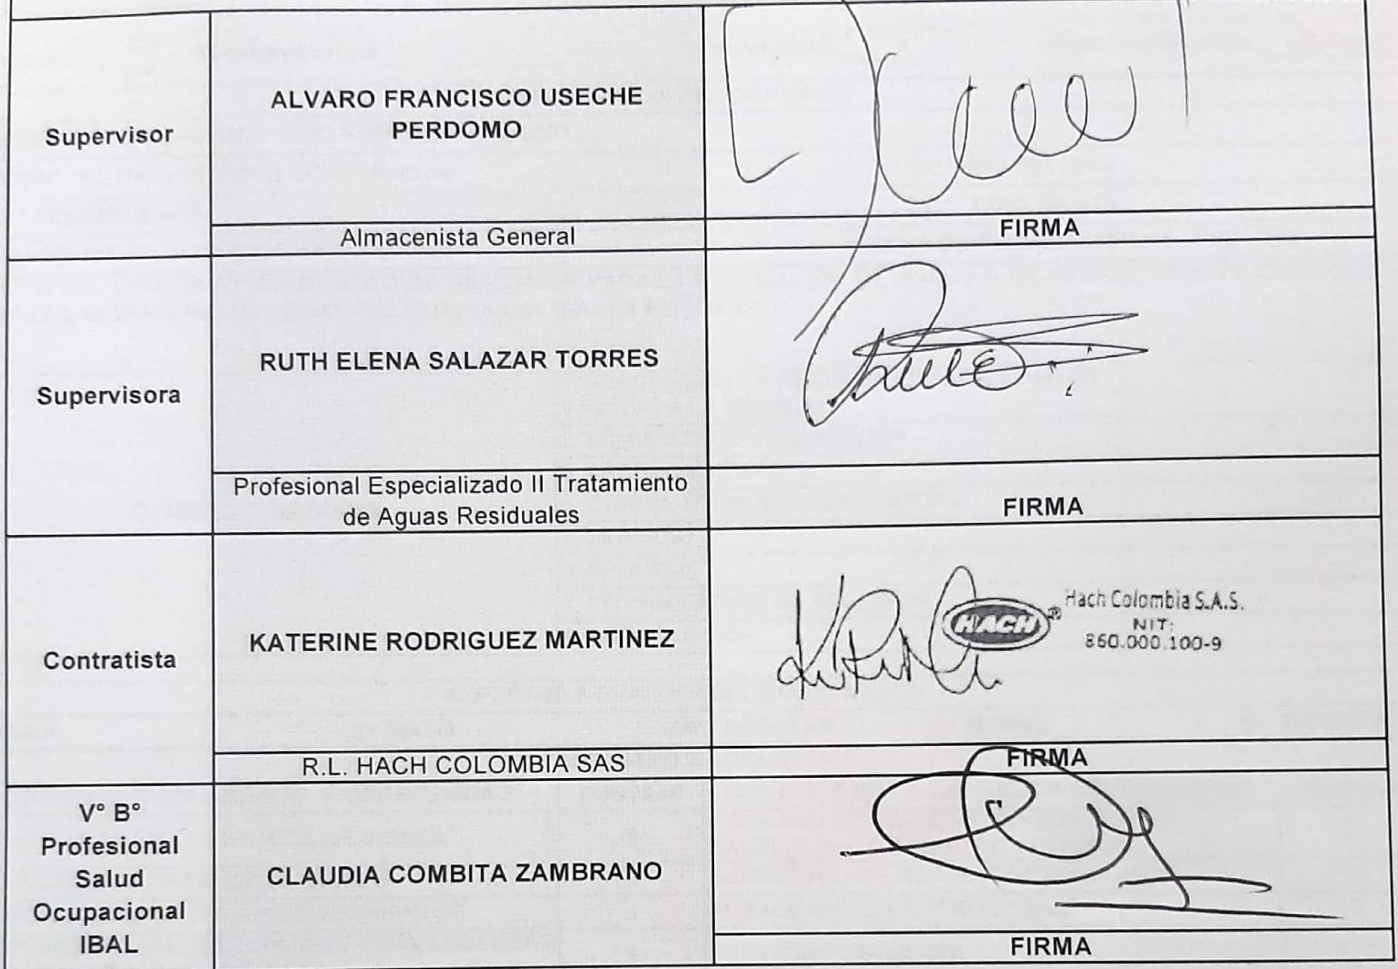 Supervisor
ALVARO FRANCISCO USECHE
PERDOMO
Almacenista General
FIRMA
Supervisora
RUTH ELENA SALAZAR TORRES
Profesional Especializado II Tratamiento
de Aguas Residuales
FIRMA
Contratista
KATERINE RODRIGUEZ MARTINEZ
HACH®
Hach Colombia S.A.S.
NIT:
860.000.100-9
R.L. HACH COLOMBIA SAS
FIRMA
V° B°
Profesional
Salud
Ocupacional
IBAL
CLAUDIA COMBITA ZAMBRANO
FIRMA